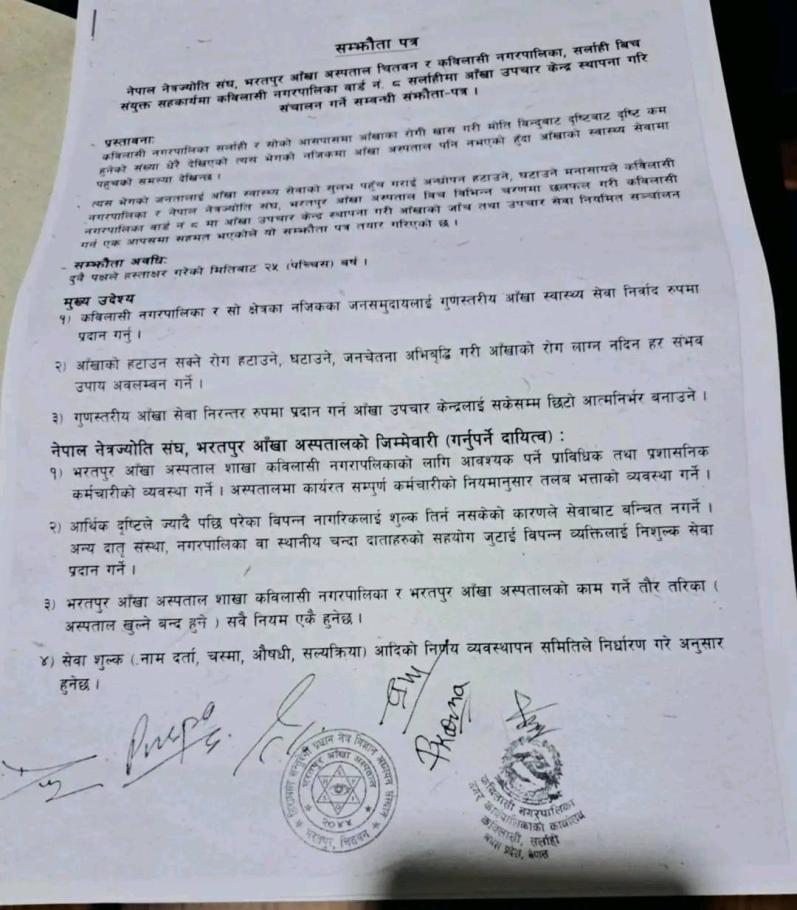 सम्झौता पत्र
नेपाल नेत्रज्योति संघ, भरतपुर आँखा अस्पताल चितवन र कविलासी नगरपालिका, सर्लाही बिच
संयुक्त सहकार्यमा कविलासी नगरपालिका वार्ड नं. ८ सर्लाहीमा आँखा उपचार केन्द्र स्थापना गरि
संचालन गर्ने सम्बन्धी संझौता-पत्र ।
प्रस्तावना:
कविलासी नगरपालिका सर्लाही र सोको आसपासमा आँखाका रोगी खास गरी मोति विन्दुबाट दृष्टिबाट दृष्टि कम
हुनेको संख्या धेरै देखिएको त्यस भेगको नजिकमा आँखा अस्पताल पनि नभएको हुँदा आँखाको स्वास्थ्य सेवामा
पहुचको समस्या देखिन्छ ।
त्यस भेगको जनतालाई आँखा स्वास्थ्य सेवाको सुलभ पहुँच गराई अन्धोपन हटाउने, घटाउने मनासायले कविलासी
नगरपालिका र नेपाल नेत्रज्योति संघ, भरतपुर आँखा अस्पताल बिच बिभिन्न चरणमा छलफल गरी कविलासी
नगरपालिका वार्ड नं ८ मा आँखा उपचार केन्द्र स्थापना गरी आँखाको जाँच तथा उपचार सेवा नियमित सञ्चालन
गर्न एक आपसमा सहमत भएकोले यो सम्झौता पत्र तयार गरिएको छ ।
सम्झौता अवधि:
दुवै पक्षले हस्ताक्षर गरेको मितिबाट २५ (पच्चिस) बर्ष ।
मुख्य उदेश्य
१) कविलासी नगरपालिका र सो क्षेत्रका नजिकका जनसमुदायलाई गुणस्तरीय आँखा स्वास्थ्य सेवा निर्वाद रुपमा
प्रदान गर्नु ।
२) आँखाको हटाउन सक्ने रोग हटाउने, घटाउने, जनचेतना अभिबृद्धि गरी आँखाको रोग लाग्न नदिन हर संभव
उपाय अवलम्वन गर्ने ।
३) गुणस्तरीय आँखा सेवा निरन्तर रुपमा प्रदान गर्न आँखा उपचार केन्द्रलाई सकेसम्म छिटो आत्मनिर्भर बनाउने ।
नेपाल नेत्रज्योति संघ, भरतपुर आँखा अस्पतालको जिम्मेवारी (गर्नुपर्ने दायित्व) :
१) भरतपुर आँखा अस्पताल शाखा कविलासी नगरापलिकाको लागि आवश्यक पर्ने प्राविधिक तथा प्रशासनिक
कर्मचारीको व्यवस्था गर्ने । अस्पतालमा कार्यरत सम्पुर्ण कर्मचारीको नियमानुसार तलब भत्ताको व्यवस्था गर्ने ।
२) आर्थिक दृष्टिले ज्यादै पछि परेका विपन्न नागरिकलाई शुल्क तिर्न नसकेको कारणले सेवाबाट बन्चित नगर्ने ।
अन्य दातृ संस्था, नगरपालिका वा स्थानीय चन्दा दाताहरुको सहयोग जुटाई विपन्न व्यक्तिलाई निशुल्क सेवा
प्रदान गर्ने ।
३) भरतपुर आँखा अस्पताल शाखा कविलासी नगरपालिका र भरतपुर आँखा अस्पतालको काम गर्ने तौर तरिका (
अस्पताल खुल्ने बन्द हुने ) सवै नियम एकै हुनेछ ।
४) सेवा शुल्क ( नाम दर्ता, चस्मा, औषधी, सल्यक्रिया) आदिको निर्णय व्यवस्थापन समितिले निर्धारण गरे अनुसार
हुनेछ ।
भरतपुर आँखा अस्पताल
२०४४
भरतपुर, चितवन
कविलासी नगरपालिका
नगर कार्यपालिकाको कार्यालय
कविलासी, सर्लाही
मधेश प्रदेश, नेपाल